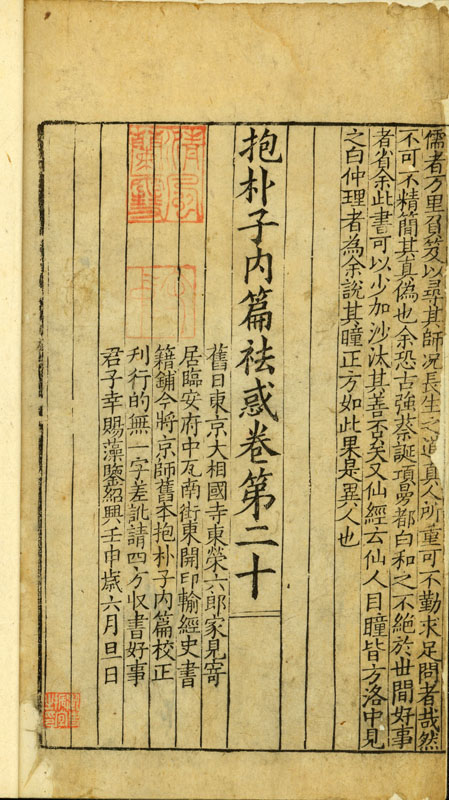 儒者万里負笈以尋其師况長生之道真人所重可不勤求足問者哉然
不可不精簡其真偽也余恐古強蔡誕項曼都白和之不絕於世間好事
者省余此書可以少加沙汰其善否矣又仙經云仙人目瞳皆方洛中見
之白仲理者為余說其瞳正方如此果是異人也
抱朴子内篇祛惑卷第二十
舊日東京大相國寺東榮六郎家見寄
居臨安府中瓦南街東開印輸經史書
籍鋪今將京師舊本抱朴子内篇校正
刊行的無一字差訛請四方収書好事
君子幸賜藻鑒紹興壬申歲六月旦日